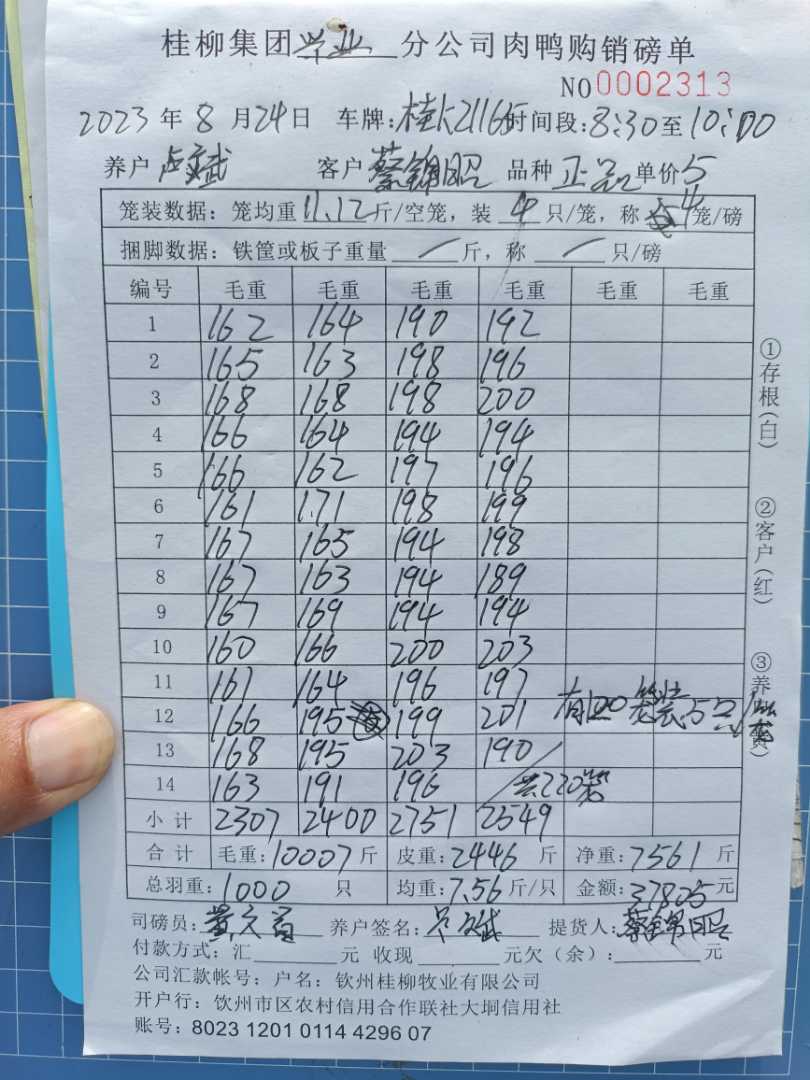 桂柳集团兴业分公司肉鸭购销磅单
NO0002313
2023年8月24日 车牌:桂K21165时间段:8:30至10:00
养户 卢斌 客户 蔡锦昭 品种 正品 单价5
笼装数据: 笼均重11.12斤/空笼, 装 4 只/笼, 称 4笼/磅
捆脚数据: 铁筐或板子重量 / 斤, 称 / 只/磅
编号 毛重 毛重 毛重 毛重 毛重 毛重
1 162 164 190 192
2 165 163 198 196
3 168 168 198 200
4 166 164 194 194
5 166 162 197 196
6 161 171 198 199
7 167 165 194 198
8 167 163 194 189
9 167 169 194 194
10 160 166 200 203
11 161 164 196 197
12 166 195 199 201 有 笼装5只/笼
13 168 195 203 190
14 163 191 196 / 共220笼
小计 2307 2400 2751 2549
合计 毛重:10007斤 皮重:2446斤 净重:7561斤
总羽重:1000 只 均重:7.56斤/只 金额:37805元
司磅员: 养户签名: 斌 提货人:蔡锦昭
付款方式: 汇 元 收现 元欠(余): 元
公司汇款帐号: 户名: 钦州桂柳牧业有限公司
开户行: 饮州市区农村信用合作联社大垌信用社
账号: 8023 1201 0114 4296 07
①存根(白)
②客户(红)
③养 黄)